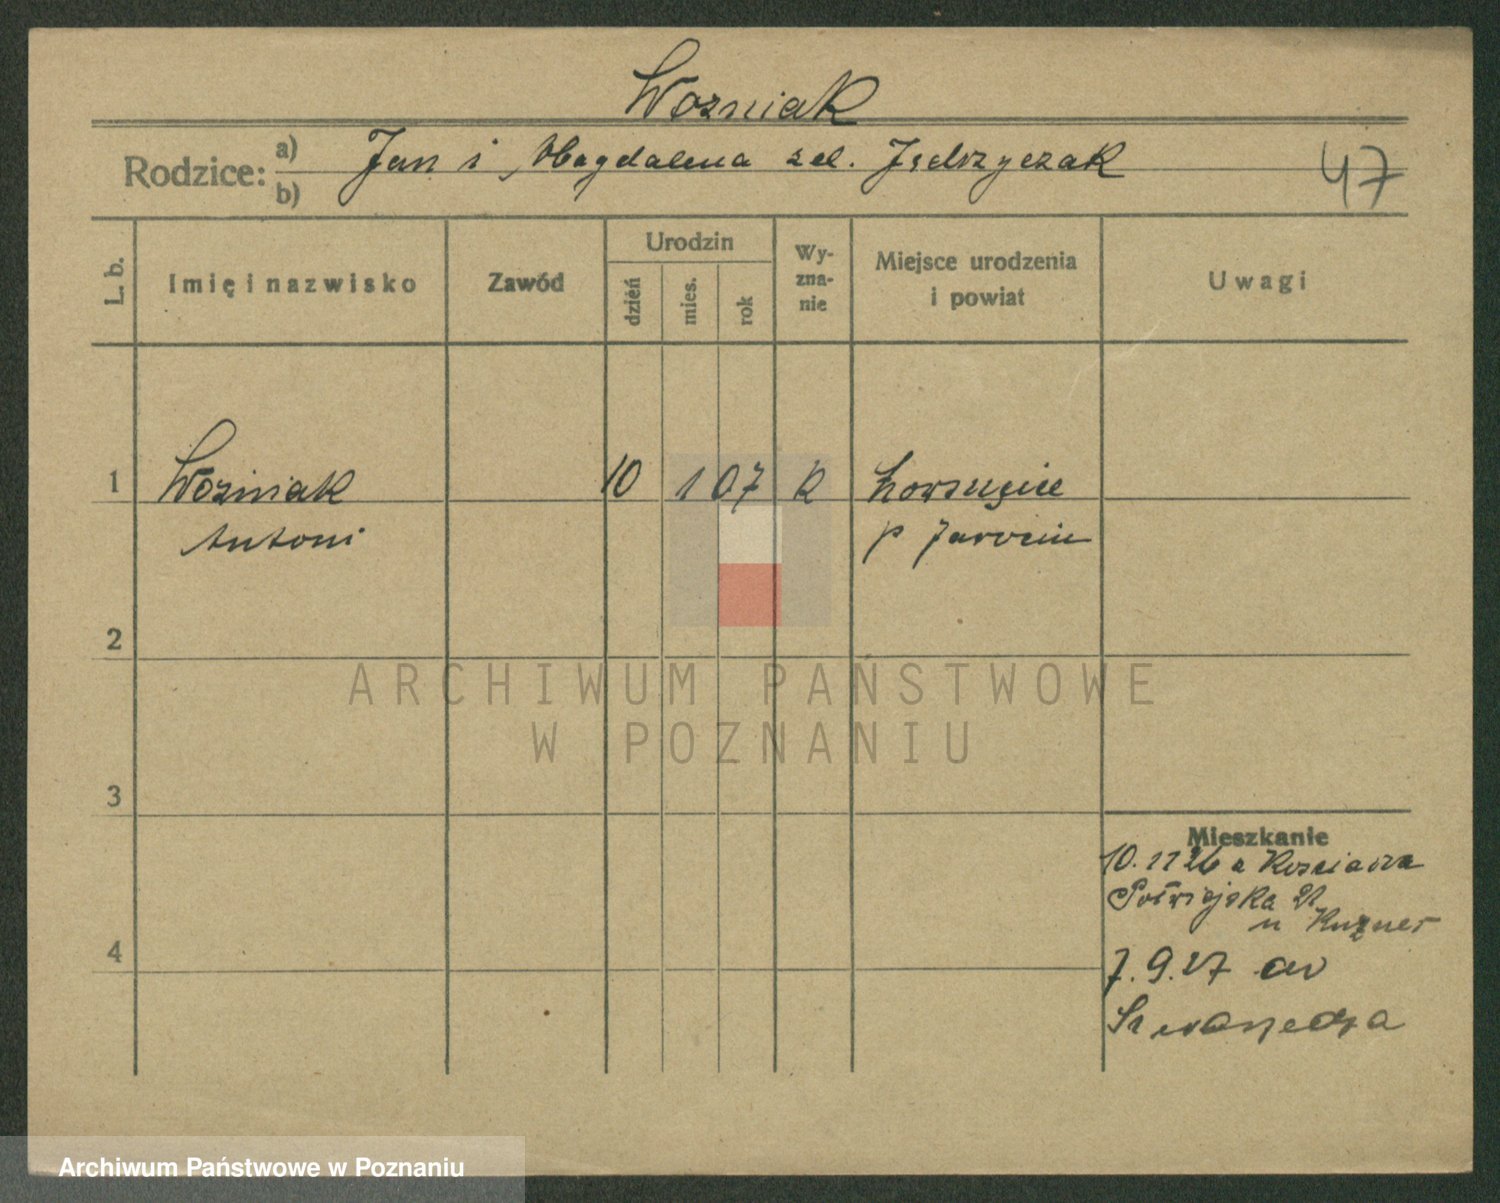 Wozniak
Rodzice: a) Jan i Magdalena zd. Jędrzyczak
b)
47
L. b.
Imię i nazwisko
Zawód
Urodzin
dzień
mies.
rok
Wy-
zna-
nie
Miejsce urodzenia
i powiat
Uwagi
1 Wozniak 10 1 07 k
Antoni p Jarocin
2
ARCHIWUM PAŃSTWOWE
W POZNANIU
3
Mieszkanie
10. 11 26 z
21
u
4
7. 9. 27
Archiwum Państwowe w Poznaniu